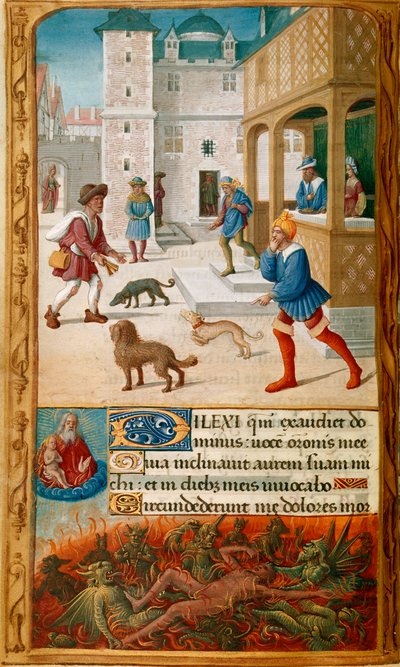 DILEXI qm̄ exaudiet do
minus: vocē orōnis mee
Quia inclinavit aurem suam mi
chi: et in dieb⁹ meis invocabo
Circundederunt me dolores mor